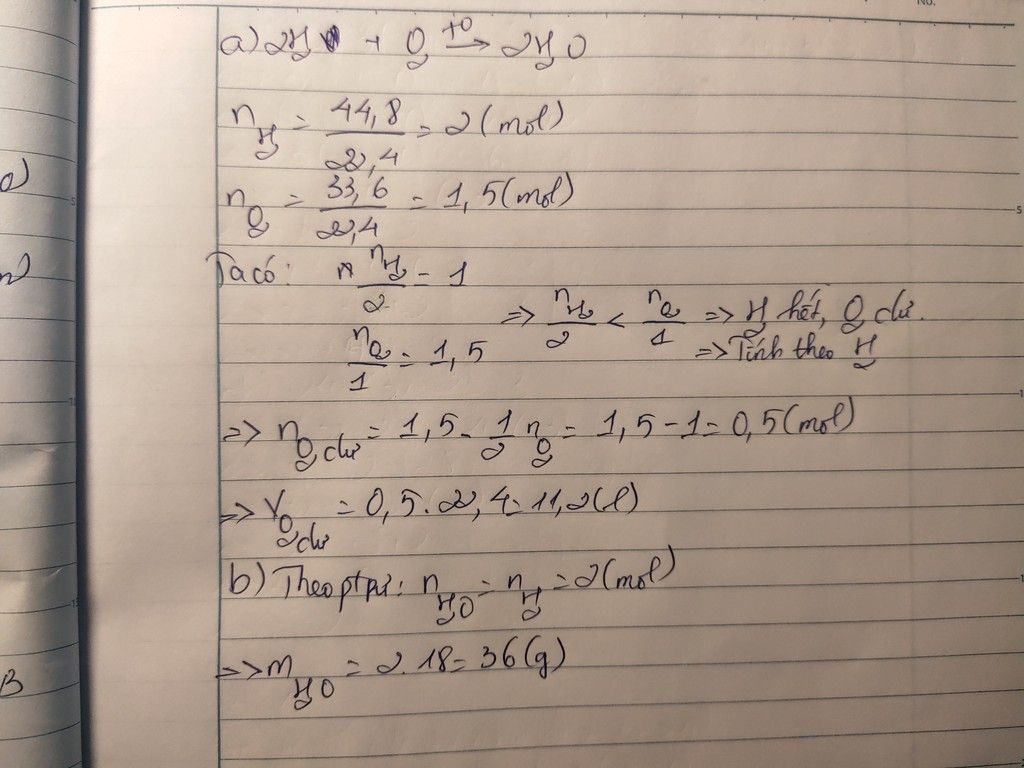 a) 2H₂ + O₂ →(t⁰) 2H₂O
n H₂ = 44,8/22,4 = 2 (mol)
n O₂ = 33,6/22,4 = 1,5 (mol)
Ta có: n H₂/2 = 1
n O₂/1 = 1,5
=> n H₂/2 < n O₂/1 => H₂ hết, O₂ dư.
=> Tính theo H₂
=> n O₂ dư = 1,5 - 1/2 n O₂ = 1,5 - 1 = 0,5 (mol)
=> V O₂ dư = 0,5 . 22,4 = 11,2 (l)
b) Theo ptpư: n H₂O = n H₂ = 2 (mol)
=> m H₂O = 2.18 = 36 (g)